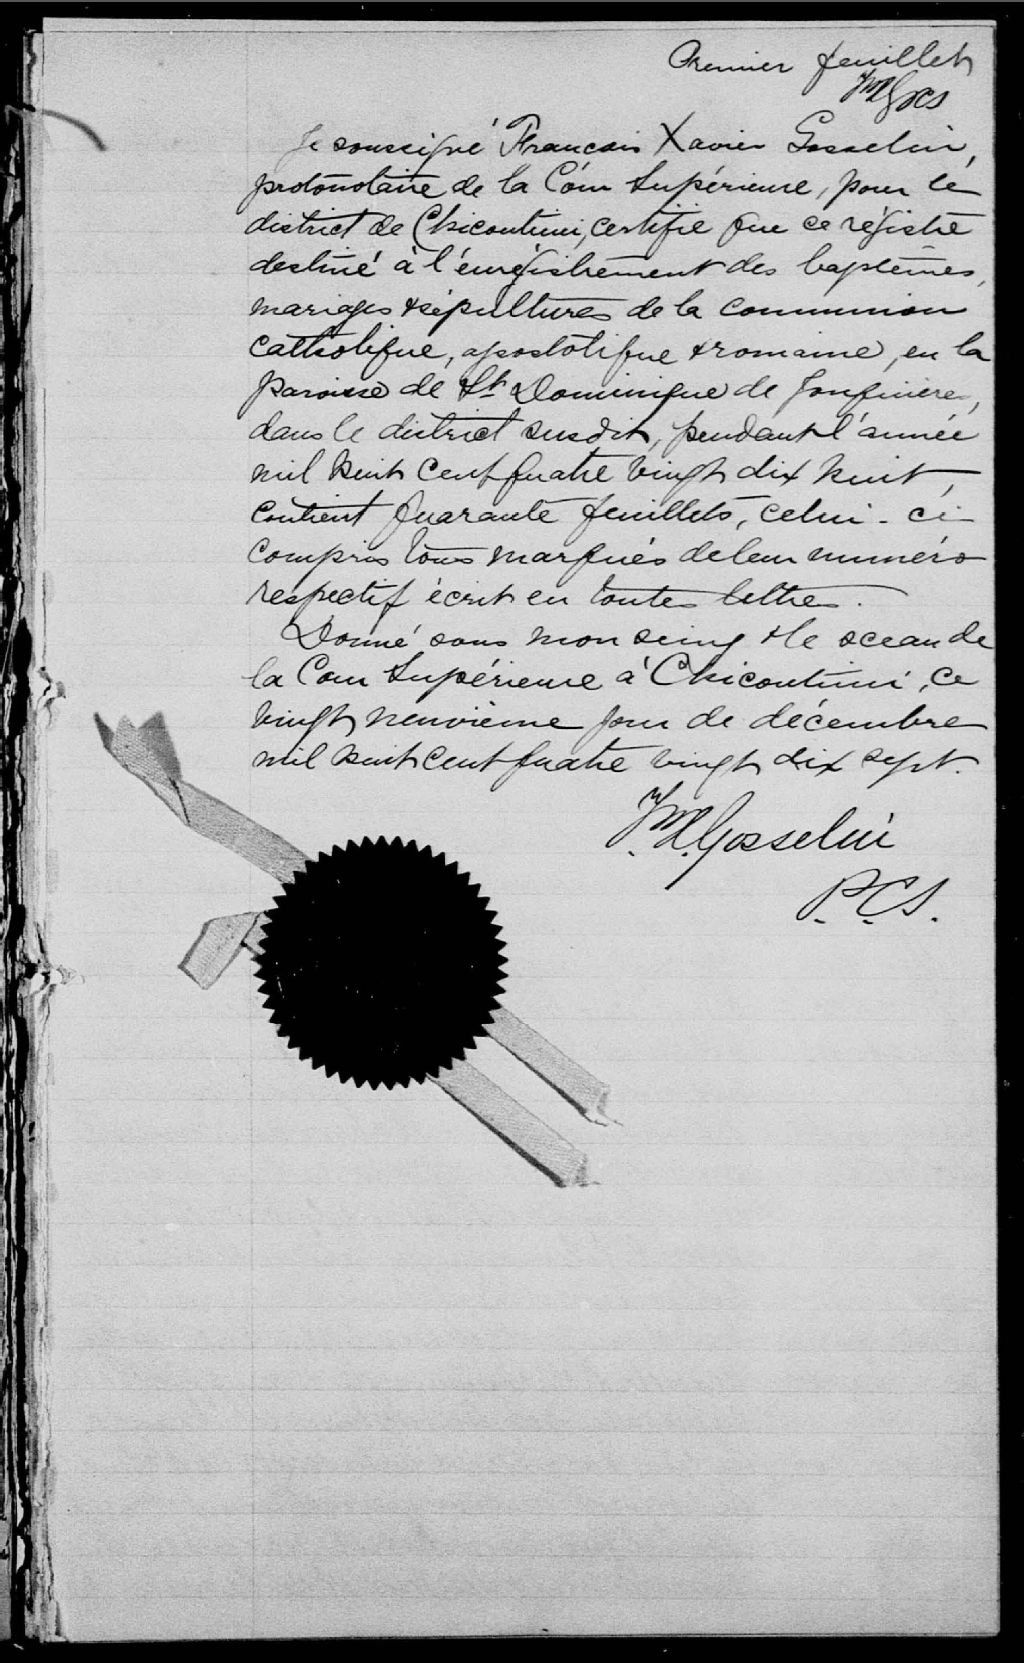 Premier feuillet
FXG PCS
Je soussigné François Xavier Gosselin,
protonotaire de la Cour Supérieure, pour le
district de Chicoutimi, certifie que ce régistre
destiné à l'enrégistrement des baptêmes,
mariages & sépultures de la communion
catholique, apostolique & romaine, en la
paroisse de St Dominique de Jonquière,
dans le district susdit, pendant l'année
mil huit cent quatre vingt dix huit,
contient quarante feuillets, celui-ci
compris tous marqués de leur numéro
respectif écrit en toutes lettres.
Donné sous mon seing & le sceau de
la Cour Supérieure à Chicoutimi, ce
vingt neuvième jour de décembre
mil huit cent quatre vingt dix sept.
F.X. Gosselin
P.C.S.